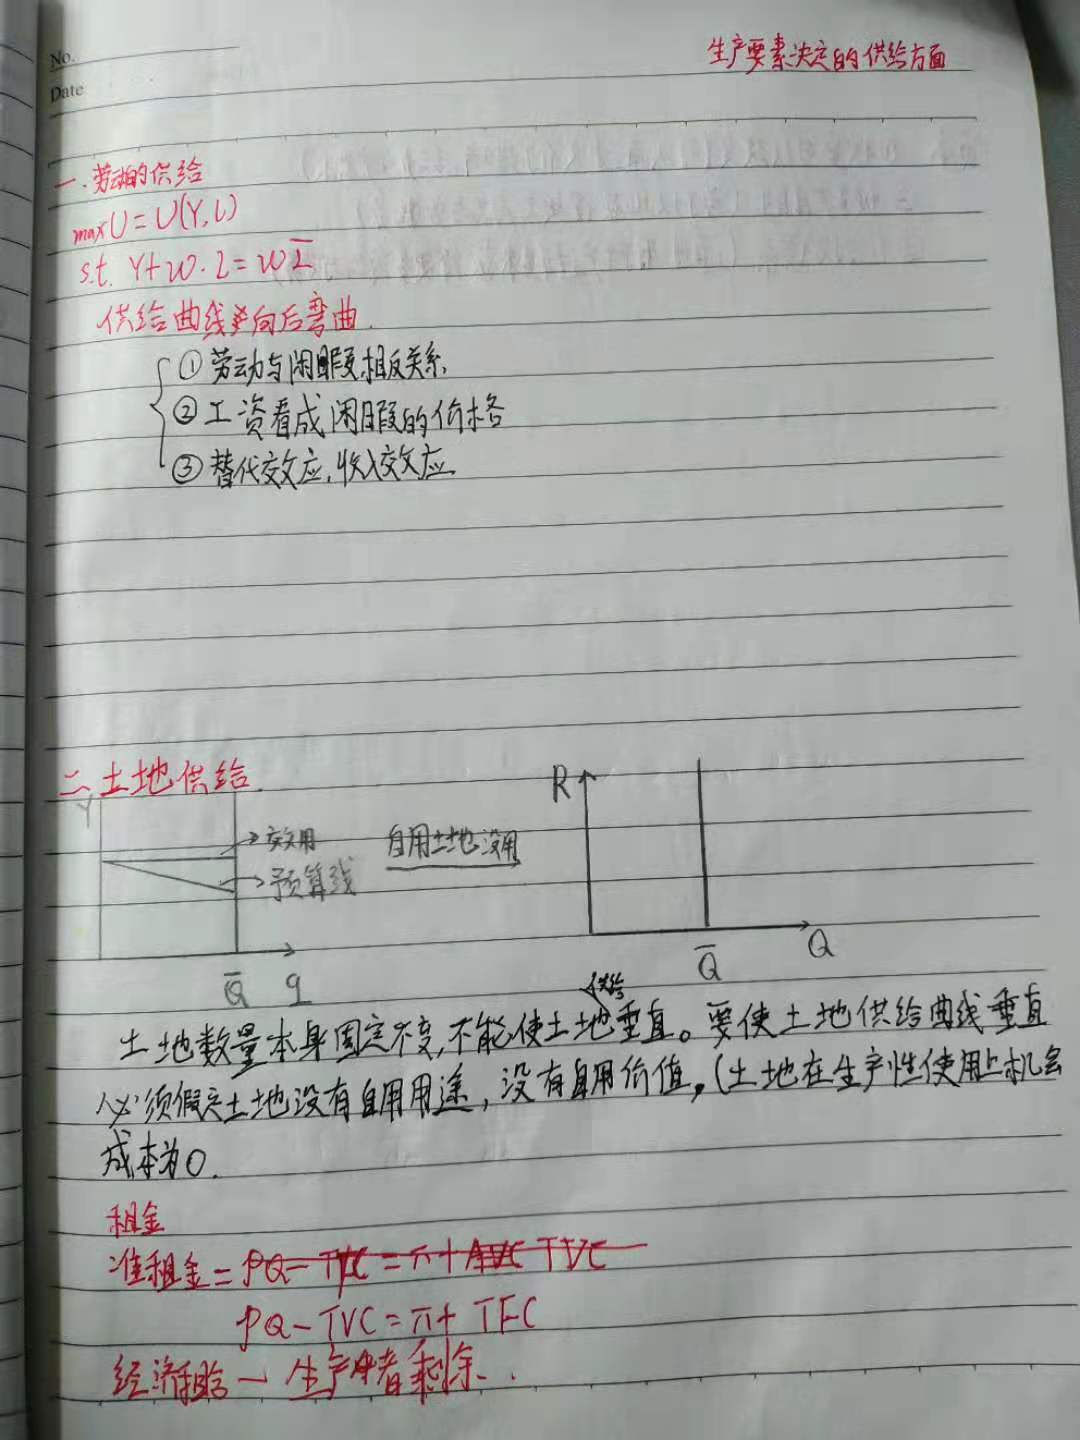 No.
Date
生产要素决定的供给方面
一.劳动的供给
max U=U(Y,L)
s.t. Y+W·L=W L̅
供给曲线向后弯曲.
①劳动与闲暇,相反关系
②工资看成闲暇的价格
③替代效应,收入效应
二.土地供给.
Y
效用
预算线
Q̅ q
自用土地没用
R
Q̅ Q
供给
土地数量本身固定不变,不能使土地垂直。要使土地供给曲线垂直
必须假定土地没有自用用途,没有自用价值,(土地在生产性使用上机会
成本为0.
租金
准租金=PQ-TVC=π+AVC TVC
PQ-TVC=π+TFC
经济租金—生产者剩余.